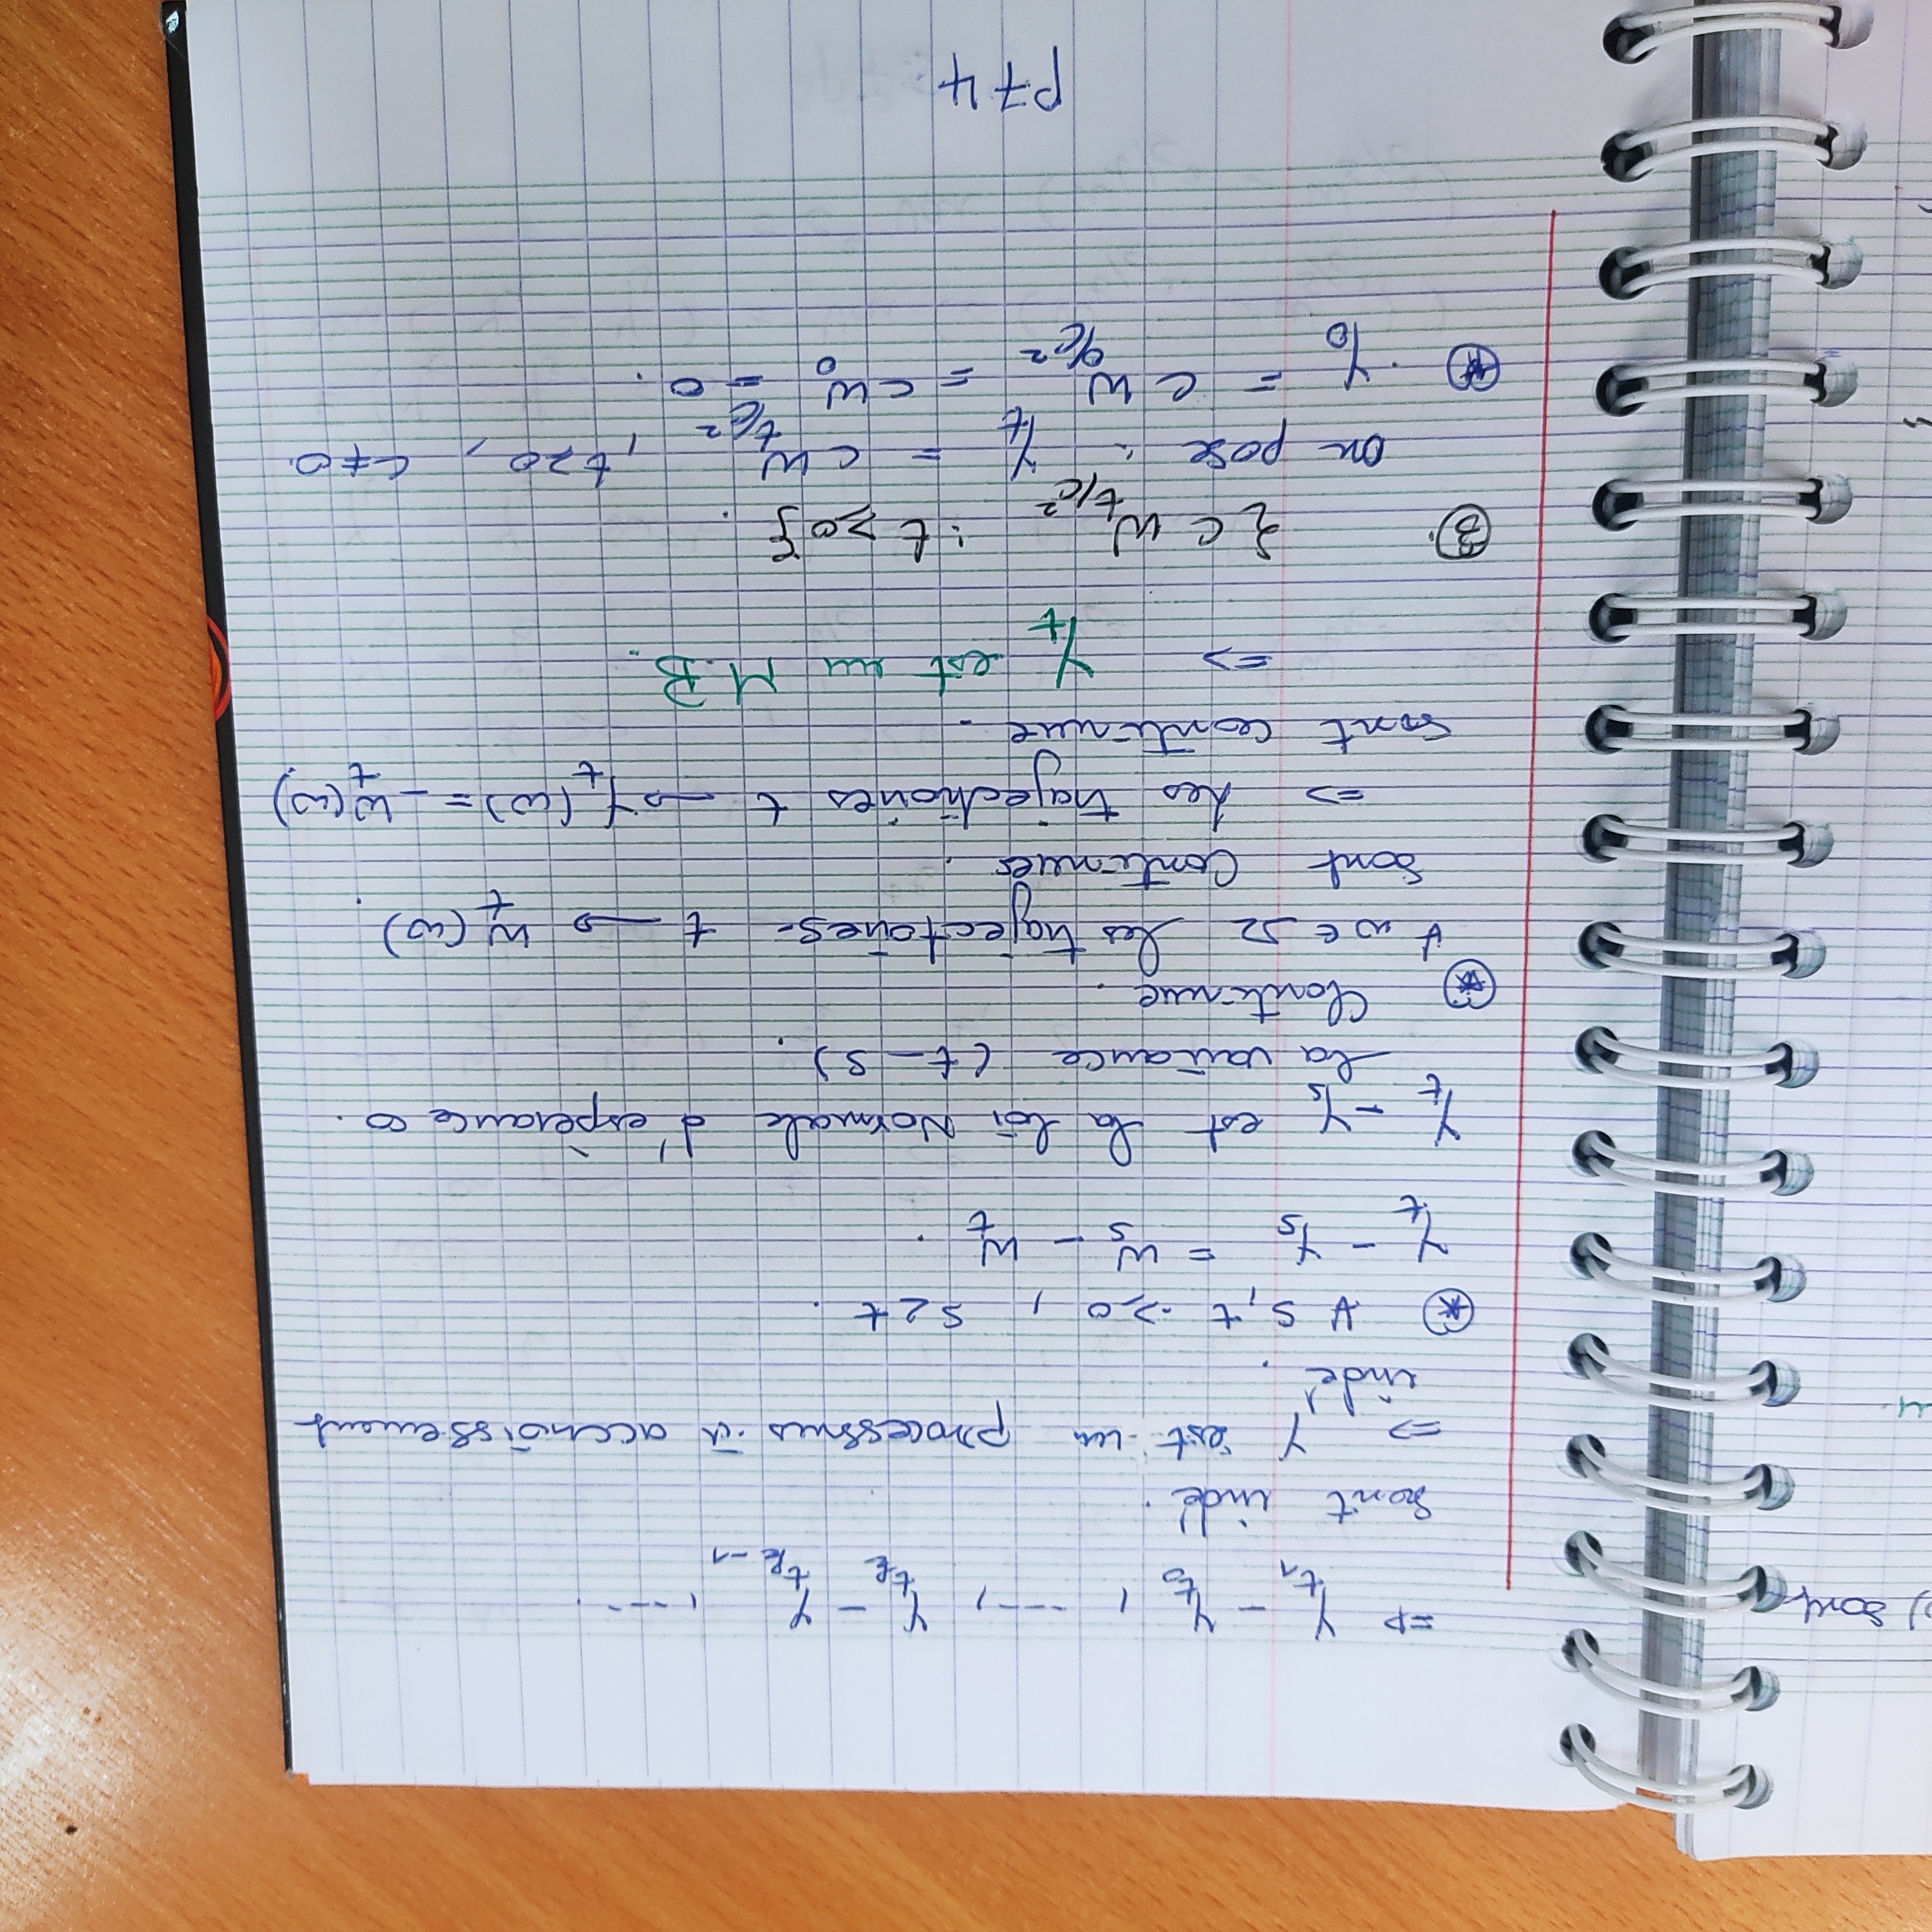 ) sont
=> Y_{t_1} - Y_{t_0} , ----, Y_{t_k} - Y_{t_{k-1}} , ----.
sont indé.
=> Y est un processus à accroissement
indé.
⊛ ∀ s, t ≥ 0 , s < t .
Y_t - Y_s = W_s - W_t .
Y_t - Y_s est la loi Normale d'espèrance 0.
la variance (t - s).
⊛ Continue.
∀ w ∈ Ω les trajectoires t → W_t (ω).
sont continues.
=> Les trajectioires t → Y_t (ω) = - W_t (ω).
sont continue.
=> Y_t est un M.B.
③. { C W_{t/c²} : t ≥ 0 } .
on pose : Y_t = C W_{t/c²} , t ≥ 0 , C ≠ 0.
⊛ . Y_0 = C W_{0/c²} = C W_0 = 0.
P74